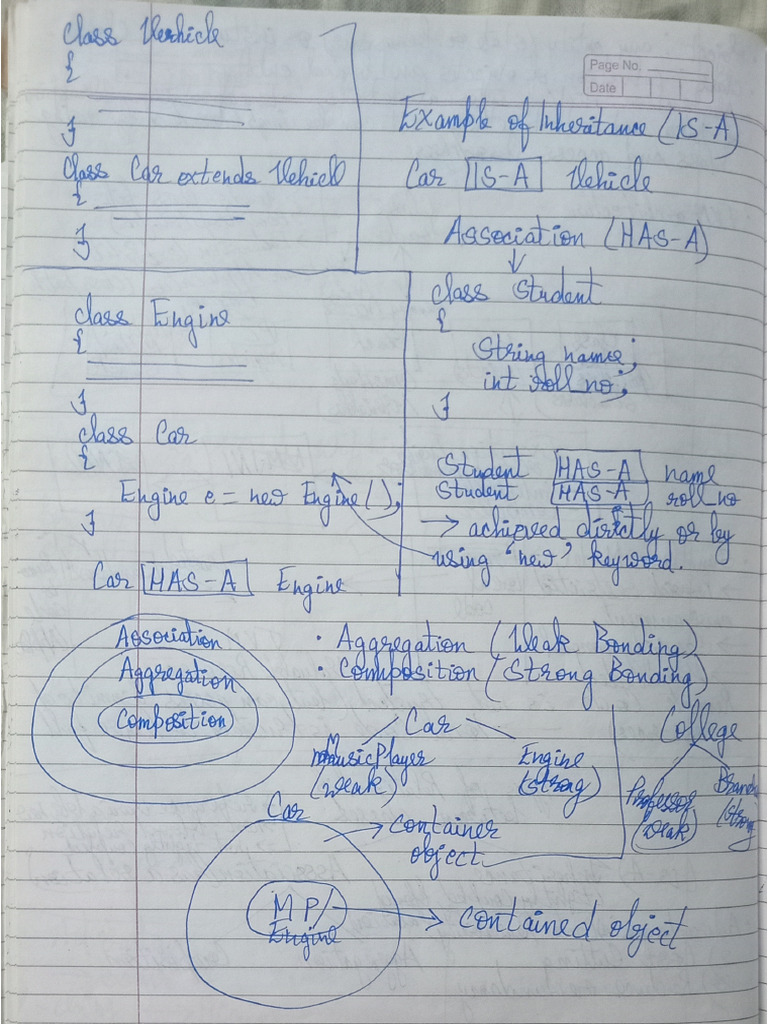 class Verhicle
{
}
class Car extends Vehicle
{
}
Page No.
Date
Example of Inheritance (IS-A)
Car IS-A Vehicle
Association (HAS-A)
class Student
{
String names;
int roll no;
}
Student HAS-A name
Student HAS-A roll no
→ achieved directly or by
using 'new' keyword.
class Engine
{
}
class Car
{
Engine e = new Engine();
}
Car HAS-A Engine
Association
Aggregation
Composition
· Aggregation (Weak Bonding)
· Composition (Strong Bonding)
Car
MusicPlayer
(weak)
Engine
(strong)
College
Professor
(weak)
Branch
(strong
Car
container
object
MP/
Engine
contained object